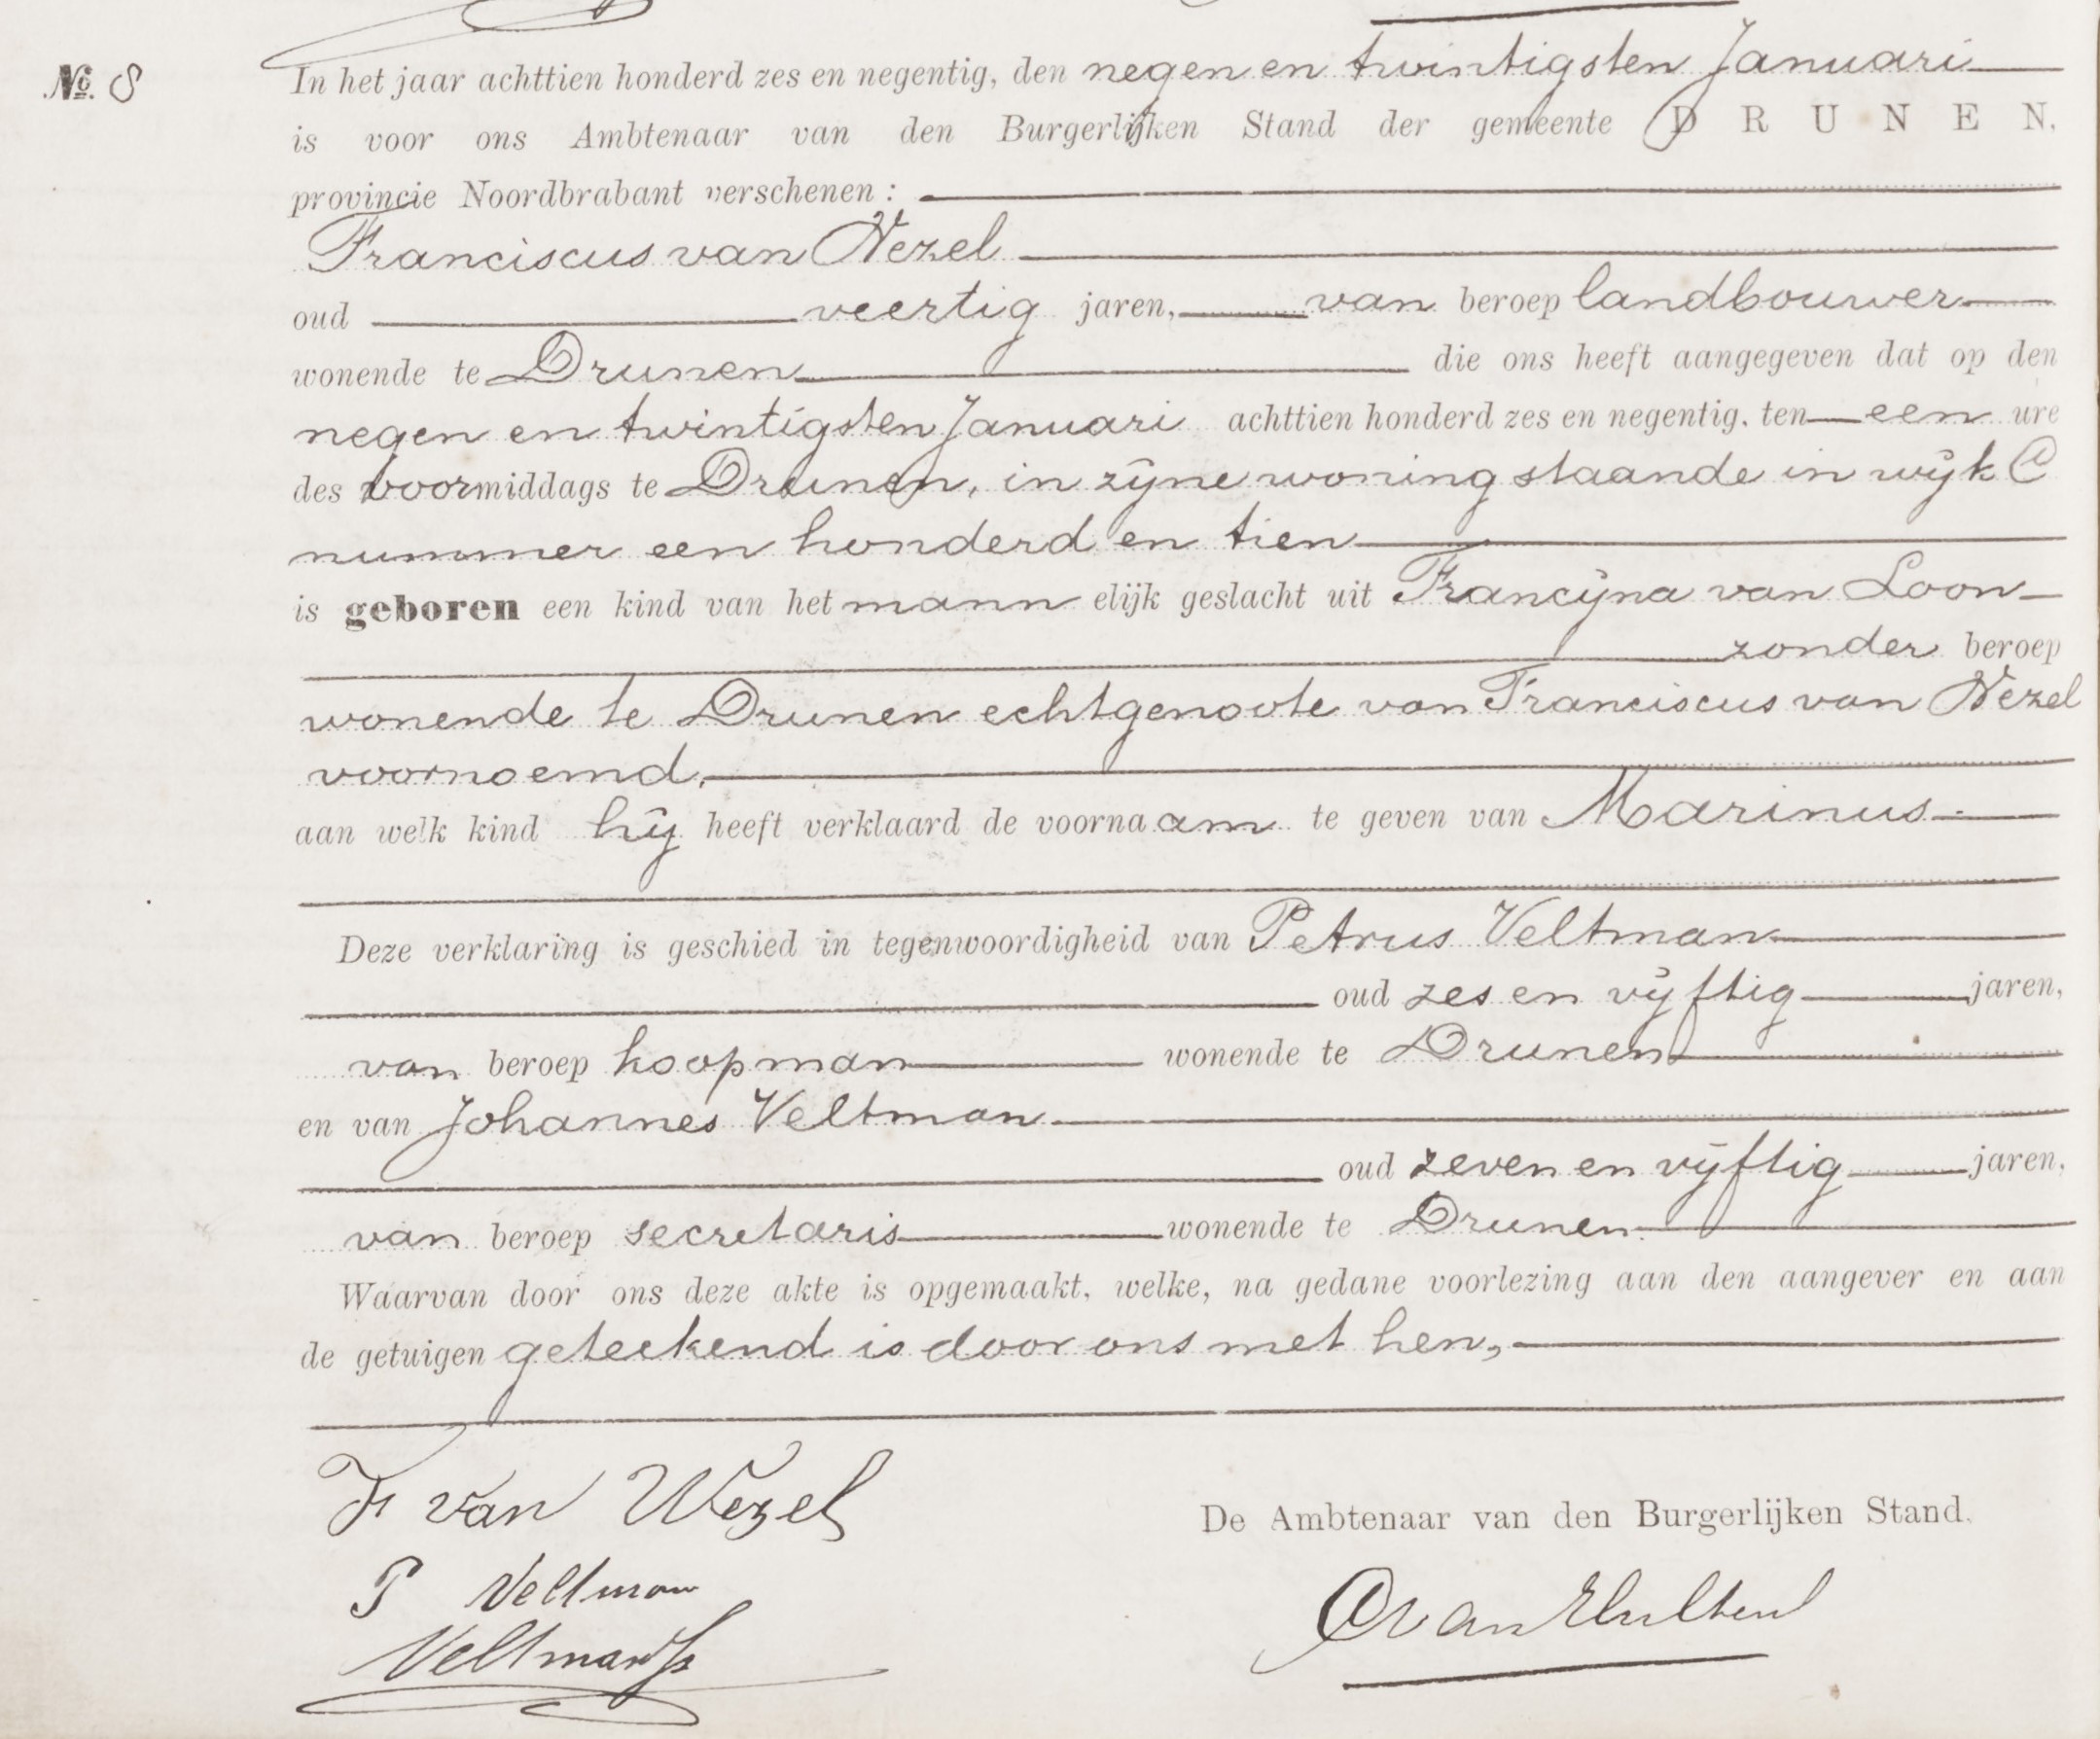 №. 8
In het jaar achttien honderd zes en negentig, den negen en twintigsten Januari
is voor ons Ambtenaar van den Burgerlijken Stand der gemeente DRUNEN,
provincie Noordbrabant verschenen:
Franciscus van Wezel
oud veertig jaren, van beroep landbouwer
wonende te Drunen die ons heeft aangegeven dat op den
negen en twintigsten Januari achttien honderd zes en negentig, ten een ure
des voormiddags te Drunen, in zijne woning staande in wijk C
nummer een honderd en tien
is geboren een kind van het mann elijk geslacht uit Francijna van Loon
zonder beroep
wonende te Drunen echtgenoote van Franciscus van Wezel
voornoemd,
aan welk kind hij heeft verklaard de voornaam te geven van Marinus
Deze verklaring is geschied in tegenwoordigheid van Petrus Veltman
oud zes en vijftig jaren,
van beroep koopman wonende te Drunen
en van Johannes Veltman
oud zeven en vijftig jaren,
van beroep secretaris wonende te Drunen
Waarvan door ons deze akte is opgemaakt, welke, na gedane voorlezing aan den aangever en aan
de getuigen geteekend is door ons met hen,
Fr van Wezel
De Ambtenaar van den Burgerlijken Stand,
P Veltman
Veltman